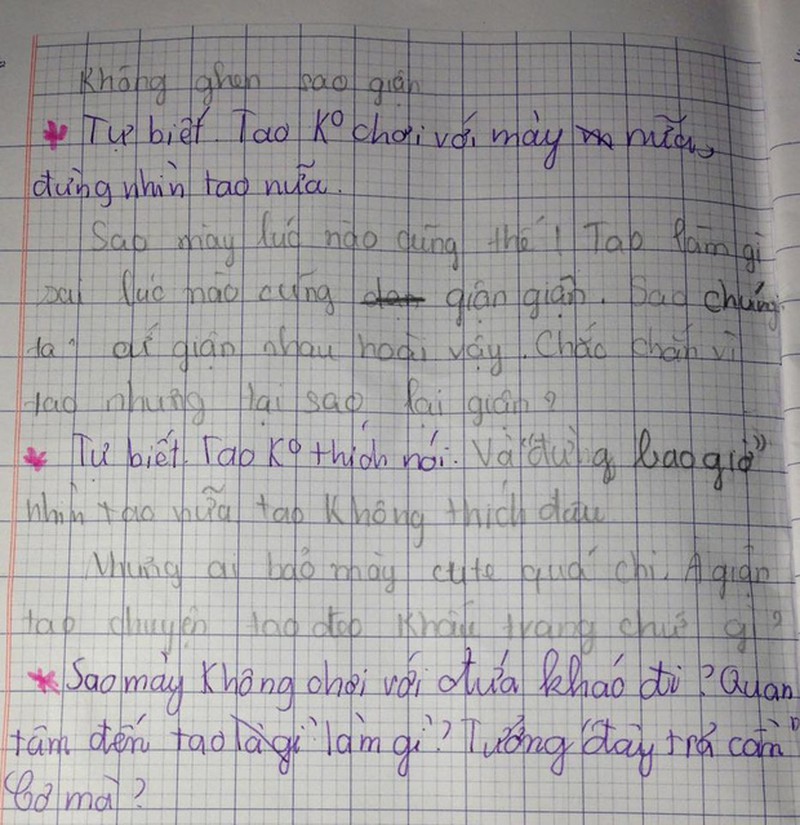 Không ghen sao giận
* Tự biết. Tao Ko chơi với mày nữa,
đừng nhìn tao nữa.
Sao mày lúc nào cũng thế! Tao làm gì
sai lúc nào cũng giận giận. Sao chúng
ta cứ giận nhau hoài vậy. Chắc chắn vì
tao nhưng tại sao lại giận?
* Tự biết. Tao Ko thích nói. Và "đừng bao giờ"
nhìn tao nữa tao Không thích đâu
Nhưng ai bảo mày cute quá chi. A giận
tao chuyện tao đeo khẩu trang chứ gì?
* Sao mày Không chơi với đứa khác đi? Quan
tâm đến tao là gì làm gì? Tưởng "đây trả cần"
Cơ mà?